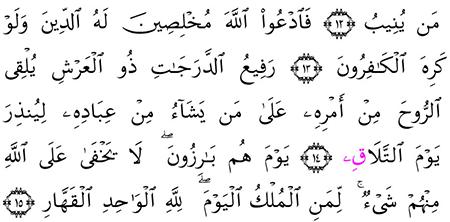 مَن يُنِيبُ ﴿١٣﴾ فَٱدْعُوا۟ ٱللَّهَ مُخْلِصِينَ لَهُ ٱلدِّينَ وَلَوْ
كَرِهَ ٱلْكَـٰفِرُونَ ﴿١٣﴾ رَفِيعُ ٱلدَّرَجَـٰتِ ذُو ٱلْعَرْشِ يُلْقِى
ٱلرُّوحَ مِنْ أَمْرِهِۦ عَلَىٰ مَن يَشَآءُ مِنْ عِبَادِهِۦ لِيُنذِرَ
يَوْمَ ٱلتَّلَاقِۦ ﴿١٤﴾ يَوْمَ هُم بَـٰرِزُونَ ۖ لَا يَخْفَىٰ عَلَى ٱللَّهِ
مِنْهُمْ شَىْءٌ ۚ لِّمَنِ ٱلْمُلْكُ ٱلْيَوْمَ ۖ لِلَّهِ ٱلْوَٰحِدِ ٱلْقَهَّارِ ﴿١٥﴾